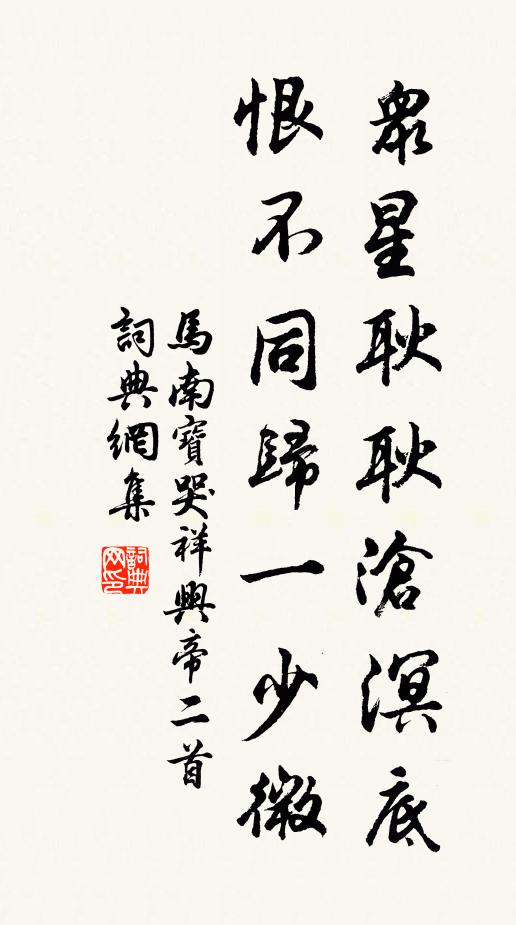 眾星耿耿滄溟底
恨不同歸一少微
馬南寶哭祥興帝二首
詞典網集
詞典网印